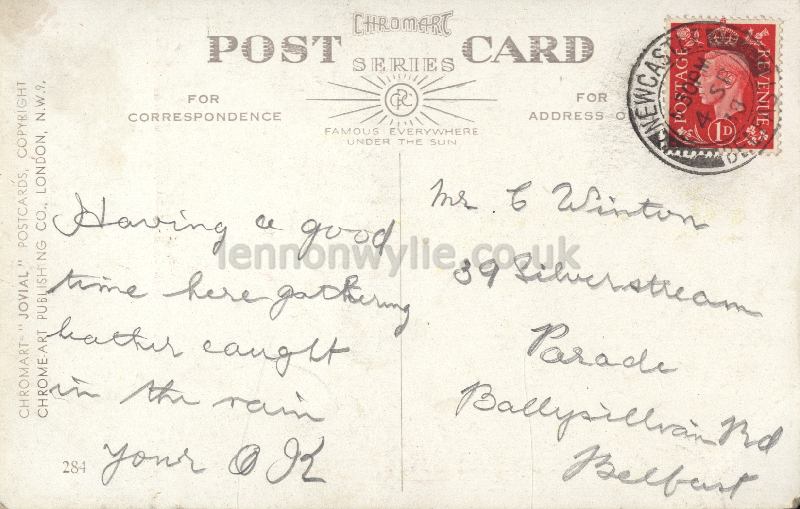 CHROMART
POST CARD
SERIES
FOR
CORRESPONDENCE
FOR
ADDRESS O
CPC
FAMOUS EVERYWHERE
UNDER THE SUN
CHROMART "JOVIAL" POSTCARDS, COPYRIGHT
CHROME-ART PUBLISHING CO., LONDON, N.W.9.
NEWCASTLE
30PM
4 SP
37
POSTAGE
REVENUE
1D
Having a good
time here gathering
heather caught
in the rain
Your O K
284
Mr C Winton
39 Silverstream
Parade
Ballysillan Rd
Belfast
lennonwylie.co.uk